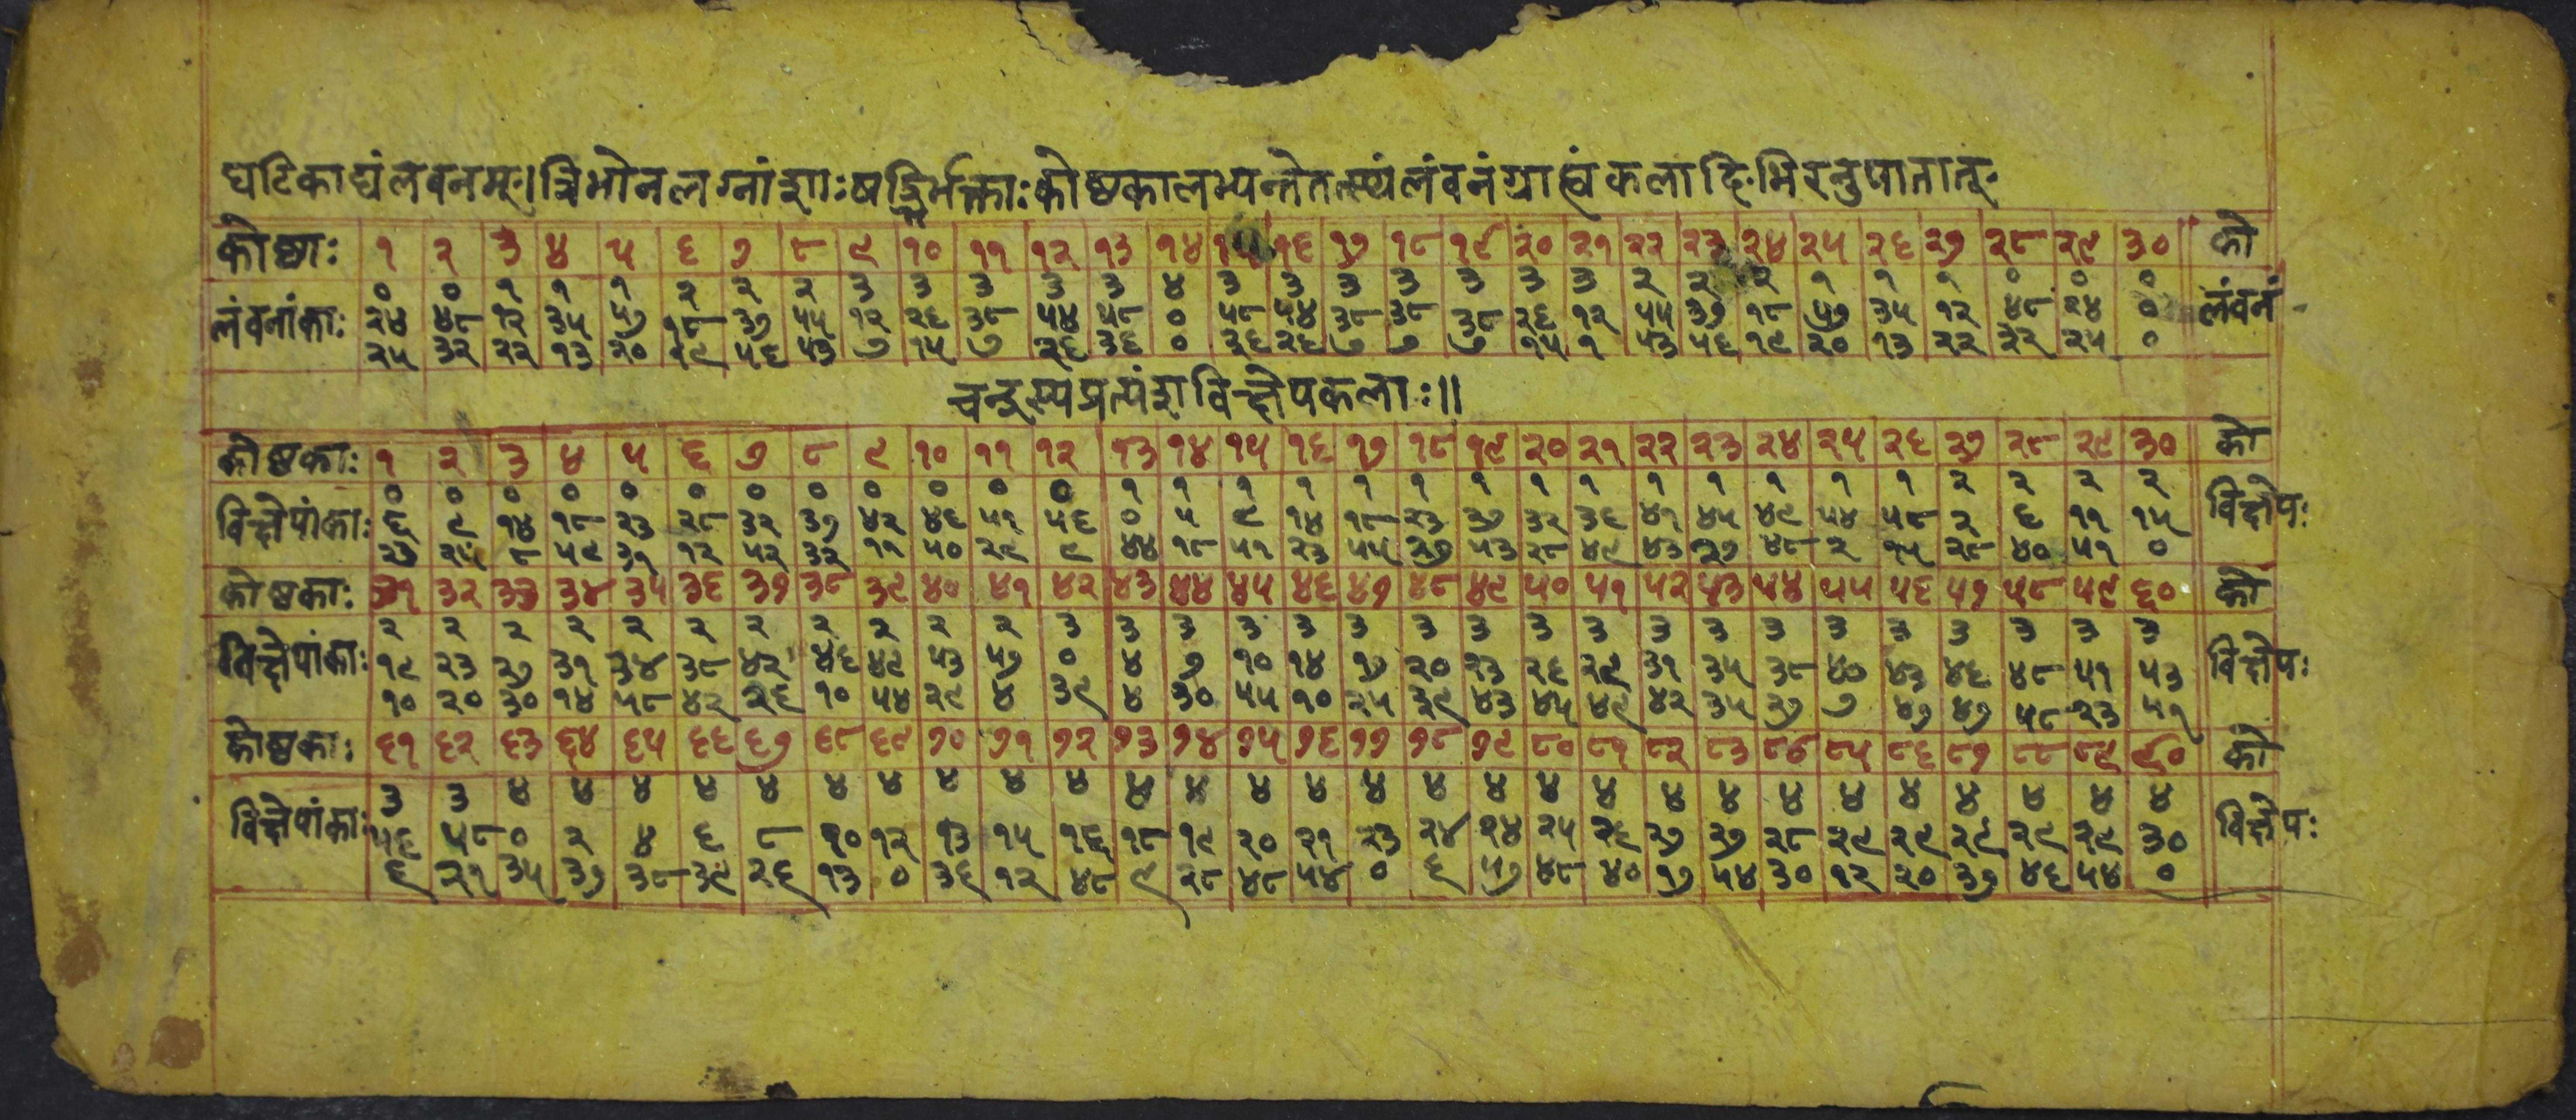 घटिकाद्यं लंवनम्। त्रिभोनलग्नांशाः षड्भिर्भक्ताः कोष्ठकालभ्यन्ते तत्स्थं लंवनं ग्राह्यं कलादिभिरनुपातात्
कोष्ठाः १ २ ३ ४ ५ ६ ७ ८ ९ १० ११ १२ १३ १४ १५ १६ १७ १८ १९ २० २१ २२ २३ २४ २५ २६ २७ २८ २९ ३० को
लंवनांकाः ० ० १ १ १ २ २ २ ३ ३ ३ ३ ३ ४ ३ ३ ३ ३ ३ ३ ३ २ २ २ १ १ १ ० ० ० लंवनं
२४ ४८ १२ ३५ ५७ १८ ३७ ५५ १२ २६ ३८ ५४ ५८ ० ५८ ५४ ३८ ३८ ३८ २६ १२ ५५ ३७ १८ ५७ ३५ १२ ४८ २४ ०
२५ ३२ २२ १३ २० १९ ५६ ५३ ७ १५ ७ २६ ३६ ० ३६ २६ ७ ७ ७ १५ १ ५३ ५६ १९ २० १३ २२ ३२ २५ ०
चन्द्रस्य प्रत्यंश विक्षेपकलाः॥
कोष्ठकाः १ २ ३ ४ ५ ६ ७ ८ ९ १० ११ १२ १३ १४ १५ १६ १७ १८ १९ २० २१ २२ २३ २४ २५ २६ २७ २८ २९ ३० को
विक्षेपांकाः ० ० ० ० ० ० ० ० ० ० ० ० १ १ १ १ १ १ १ १ १ १ १ १ १ १ २ २ २ २ विक्षेपः
६ ९ १४ १८ २३ २८ ३२ ३७ ४२ ४६ ५१ ५६ ० ५ ९ १४ १८ २३ ३७ ३२ ३६ ४१ ४५ ४९ ५४ ५८ २ ६ ११ १५
२७ २५ ८ ५९ ३१ १२ ५२ ३२ ११ ५० २९ ९ ४४ १८ ५१ २३ ५५ २७ ५३ २८ ४९ ४३ २७ ४८ २ १५ २८ ४० ५१ ०
कोष्ठकाः ३१ ३२ ३३ ३४ ३५ ३६ ३७ ३८ ३९ ४० ४१ ४२ ४३ ४४ ४५ ४६ ४७ ४८ ४९ ५० ५१ ५२ ५३ ५४ ५५ ५६ ५७ ५८ ५९ ६० को
विक्षेपांकाः २ २ २ २ २ २ २ २ २ २ २ ३ ३ ३ ३ ३ ३ ३ ३ ३ ३ ३ ३ ३ ३ ३ ३ ३ ३ ३ विक्षेपः
१९ २३ २७ ३१ ३४ ३८ ४२ ४६ ४९ ५३ ५७ ० ४ ७ १० १४ १७ २० २३ २६ २९ ३१ ३५ ३८ ४० ४३ ४६ ४८ ५१ ५३
१० २० ३० १४ ५८ ४२ २६ १० ५४ २९ ४ ३९ ४ ३० ५५ १० २५ ३९ ४३ ४५ ४९ ४२ ३५ २७ ७ ४७ ४७ ५८ २३ ५१
कोष्ठकाः ६१ ६२ ६३ ६४ ६५ ६६ ६७ ६८ ६९ ७० ७१ ७२ ७३ ७४ ७५ ७६ ७७ ७८ ७९ ८० ८१ ८२ ८३ ८४ ८५ ८६ ८७ ८८ ८९ ९० को
विक्षेपांकाः ३ ३ ४ ४ ४ ४ ४ ४ ४ ४ ४ ४ ४ ४ ४ ४ ४ ४ ४ ४ ४ ४ ४ ४ ४ ४ ४ ४ ४ ४ विक्षेपः
५६ ५८ ० २ ४ ६ ८ १० १२ १३ १५ १६ १८ १९ २० २१ २३ २४ २४ २५ २६ २७ २७ २८ २९ २९ २९ २९ २९ ३०
६ २१ ३५ ३७ ३८ ३९ २६ १३ ० ३६ १२ ४८ ९ २८ ४८ ५४ ० ६ ५७ ४८ ४० १७ ५४ ३० १२ २० ३७ ४६ ५४ ०